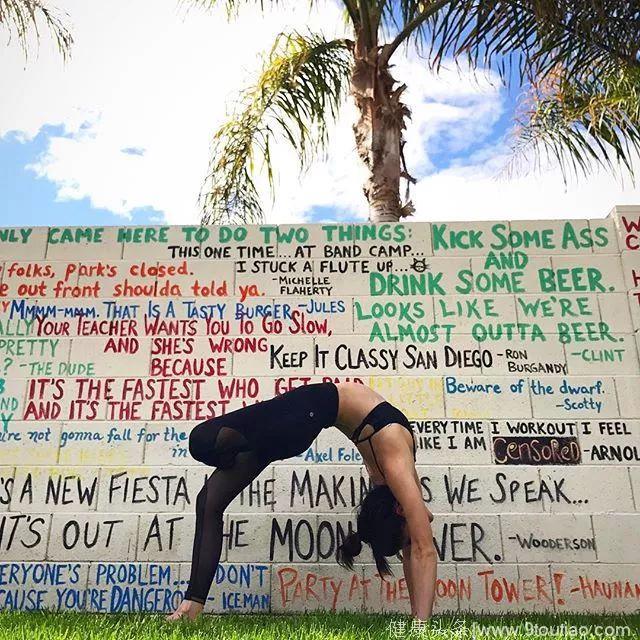 NLY CAME HERE TO DO TWO THINGS:
KICK SOME ASS
AND
DRINK SOME BEER.
LOOKS LIKE WE'RE
ALMOST OUTTA BEER.
-CLINT
THIS ONE TIME...AT BAND CAMP...
I STUCK A FLUTE UP...
-MICHELLE
FLAHERTY
folks, Park's closed.
e out front shoulda told ya.
MMMM-MMM. THAT IS A TASTY BURGER-JULES
YOUR TEACHER WANTS YOU TO GO SLOW,
AND SHE'S WRONG
BECAUSE
IT'S THE FASTEST WHO GET PAID
AND IT'S THE FASTEST
PRETTY
? -THE DUDE
KEEP IT CLASSY SAN DIEGO -RON
BURGANDY
Beware of the dwarf.
-Scotty
're not gonna fall for the
in
-Axel Fole
EVERY TIME I WORKOUT I FEEL
LIKE I AM CENSORED -ARNOL
'S A NEW FIESTA IN THE MAKIN AS WE SPEAK...
IT'S OUT AT THE MOON TOWER. -WOODERSON
ERYONE'S PROBLEM... DON'T
CAUSE YOU'RE DANGEROUS -ICEMAN
PARTY AT THE MOON TOWER! -HAUNAN
健康头条|www.9toutiao.com